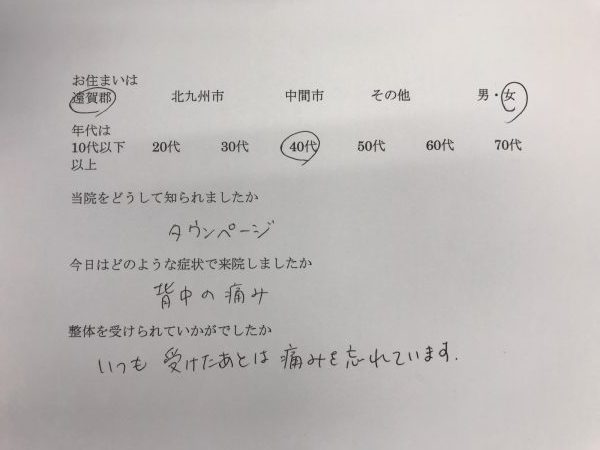 お住まいは
遠賀郡 北九州市 中間市 その他 男・女
年代は
10代以下 20代 30代 40代 50代 60代 70代
以上
当院をどうして知られましたか
タウンページ
今日はどのような症状で来院しましたか
背中の痛み
整体を受けられていかがでしたか
いつも 受けたあとは 痛みを忘れています.